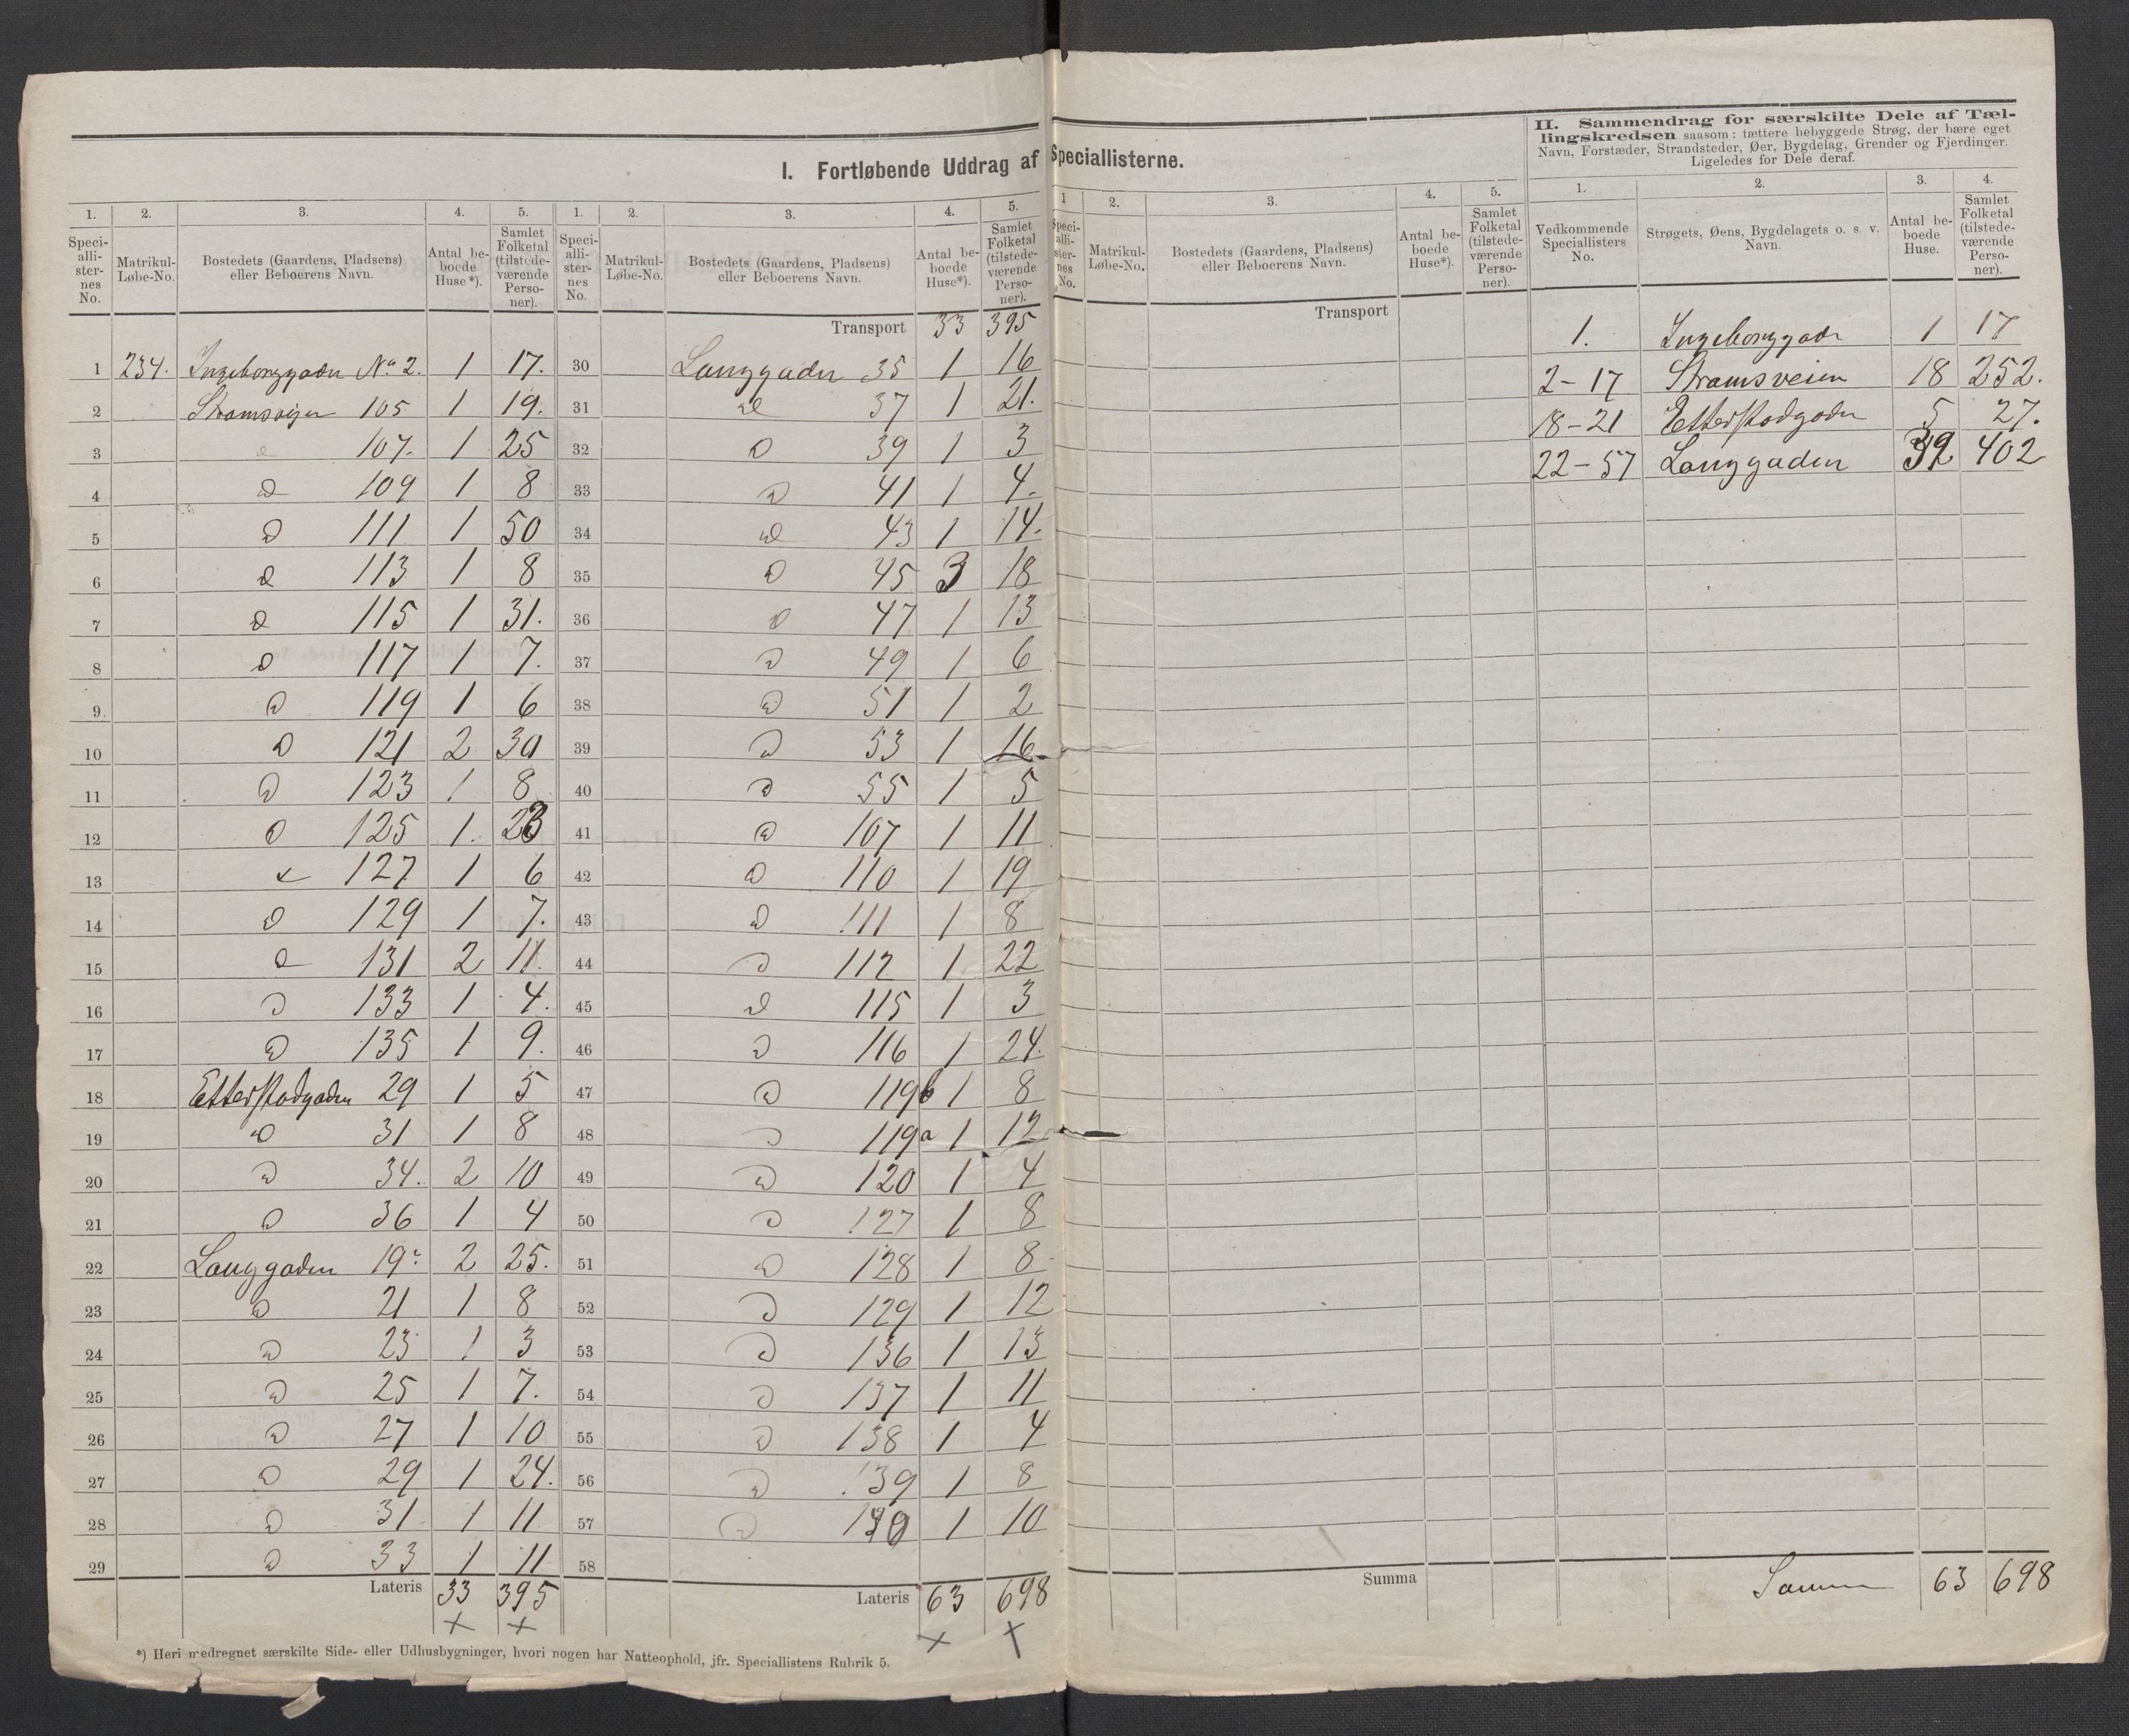 I. Fortløbende Uddrag af Speciallisterne.
1. 2. 3. 4. 5.
Speciallisternes No. Matrikul-Løbe-No. Bostedets (Gaardens, Pladsens) eller Beboerens Navn. Antal beboede Huse*). Samlet Folketal (tilstedeværende Personer).
1 234. Ingeborggaden No 2. 1 17.
2 Strømsveien 105 1 19.
3 " 107. 1 25
4 " 109 1 8
5 " 111 1 50
6 " 113 1 8
7 " 115 1 31.
8 " 117 1 7.
9. " 119 1 6
10 " 121 2 30
11 " 123 1 8
12 " 125 1. 23
13 " 127 1 6
14 " 129 1 7.
15 " 131 2 11.
16 " 133 1 4.
17 " 135 1 9.
18 Etterstadgaden 29 1 5
19 " 31 1 8
20 " 34. 2 10
21 " 36 1 4
22 Langgaden 19 2 25.
23 " 21 1 8
24 " 23 1 3
25 " 25 1 7.
26 " 27 1 10
27 " 29 1 24.
28 " 31 1 11
29 " 33 1 11
Lateris 33 395
1. 2. 3. 4. 5.
Speciallisternes No. Matrikul-Løbe-No. Bostedets (Gaardens, Pladsens) eller Beboerens Navn. Antal beboede Huse*). Samlet Folketal (tilstedeværende Personer).
Transport 33 395
30 Langgaden 35 1 16
31 " 37 1 21.
32 " 39 1 3
33 " 41 1 4.
34 " 43 1 14.
35 " 45 3 18
36 " 47 1 13
37 " 49 1 6
38 " 51 1 2
39 " 53 1 16
40 " 55 1 5
41 " 107 1 11
42 " 110 1 19
43 " 111 1 8
44 " 112 1 22
45 " 115 1 3
46 " 116 1 24.
47 " 119 b 1 8
48 " 119 a 1 12
49 " 120 1 4
50 " 127 1 8
51 " 128 1 8
52 " 129 1 12
53 " 136 1 13
54 " 137 1 11
55 " 138 1 4
56 " 139 1 8
57 " 1 10
58
Lateris 63 698
*) Heri medregnet særskilte Side- eller Udhusbygninger, hvori nogen har Natteophold, jfr. Speciallistens Rubrik 5.
1 2. 3. 4. 5.
Speciallisternes No. Matrikul-Løbe-No. Bostedets (Gaardens, Pladsens) eller Beboerens Navn. Antal beboede Huse*). Samlet Folketal (tilstedeværende Personer).
Transport
Summa
II. Sammendrag for særskilte Dele af Tællingskredsen saasom: tættere bebyggede Strøg, der bære eget
Navn, Forstæder, Strandsteder, Øer, Bygdelag, Grender og Fjerdinger.
Ligeledes for Dele deraf.
1. 2. 3. 4.
Vedkommende Speciallisters No. Strøgets, Øens, Bygdelagets o. s. v. Navn. Antal beboede Huse. Samlet Folketal (tilstedeværende Personer).
1. Ingeborggade 1 17
2-17 Strømsveien 18 252.
18-21 Etterstadgaden 5 27.
22-57 Langgaden 39 402
Summa 63 698